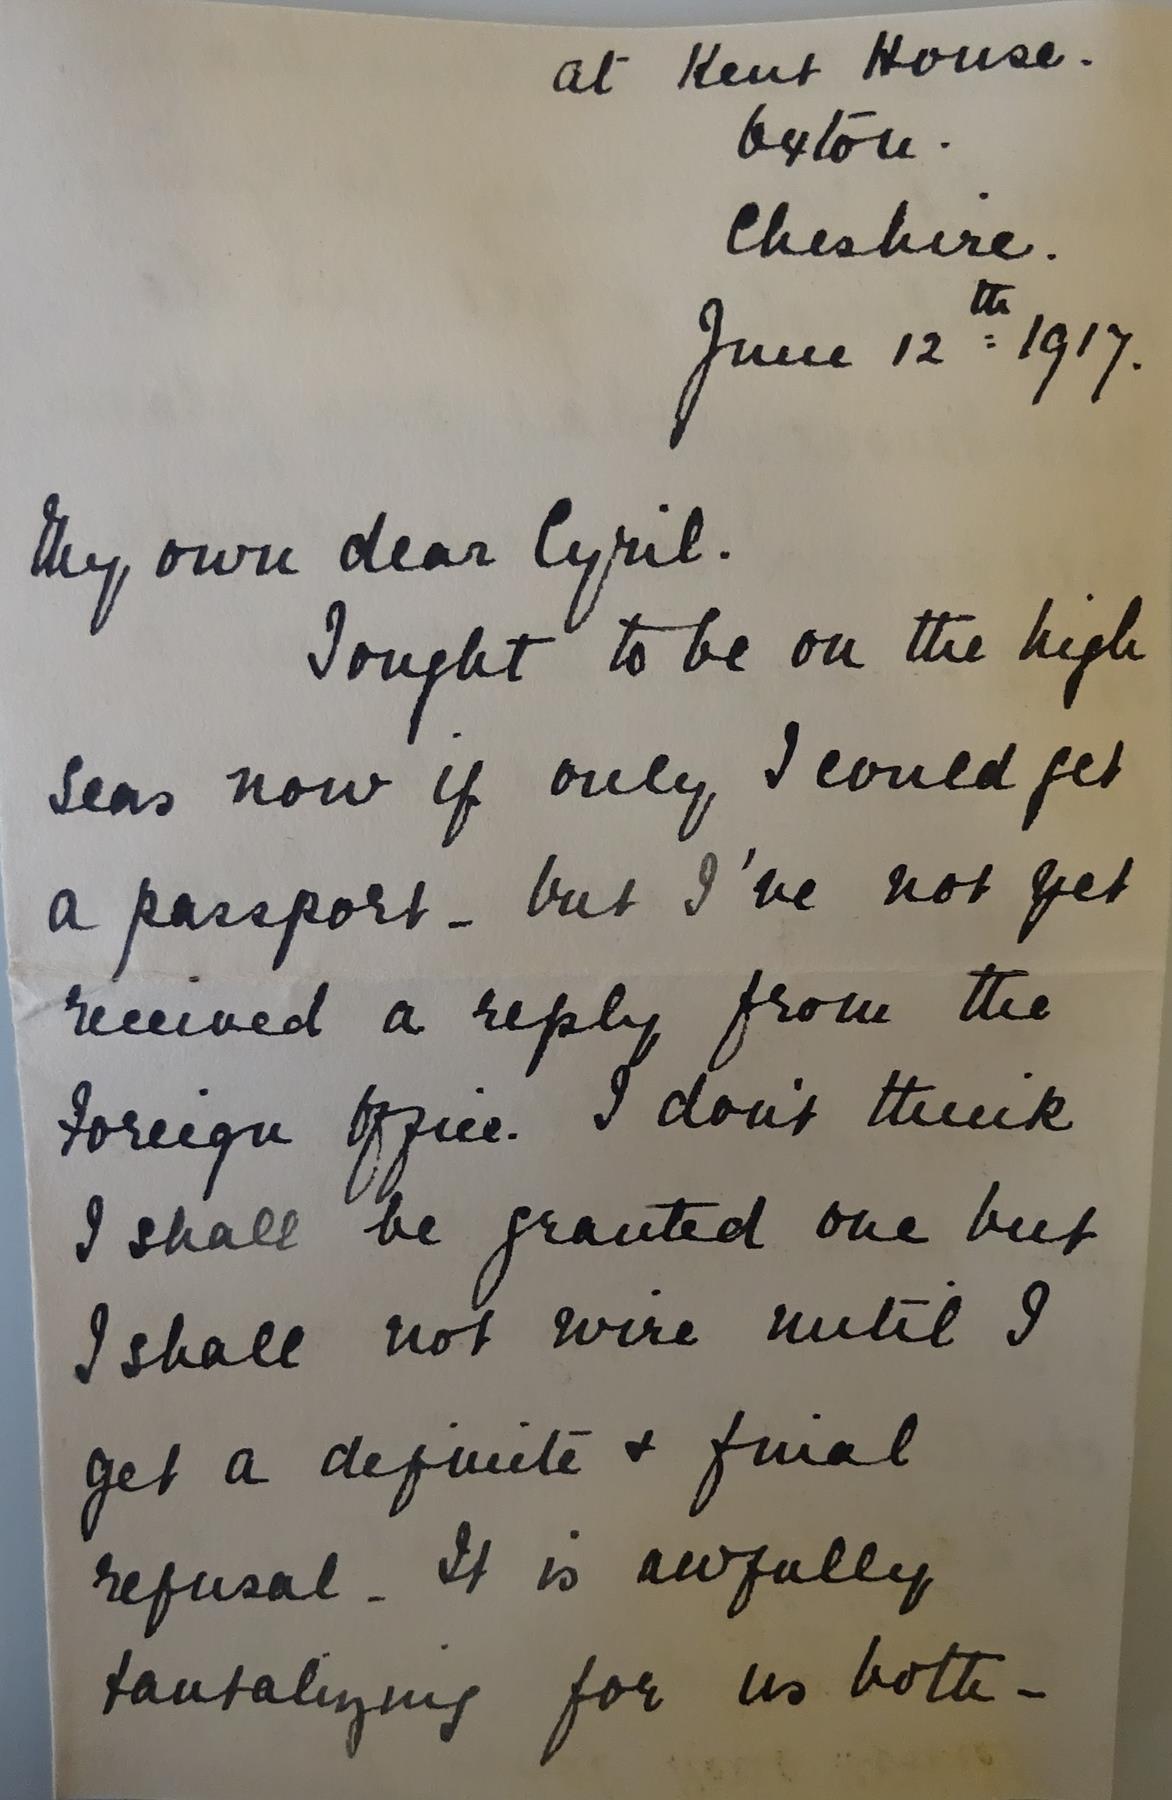 at Kent House.
Oxton.
Cheshire.
June 12th 1917.
My own dear Cyril.
I ought to be on the high
seas now if only I could get
a passport - but I've not yet
received a reply from the
Foreign Office. I don't think
I shall be granted one but
I shall not wire until I
get a definite & final
refusal - It is awfully
tantalizing for us both -